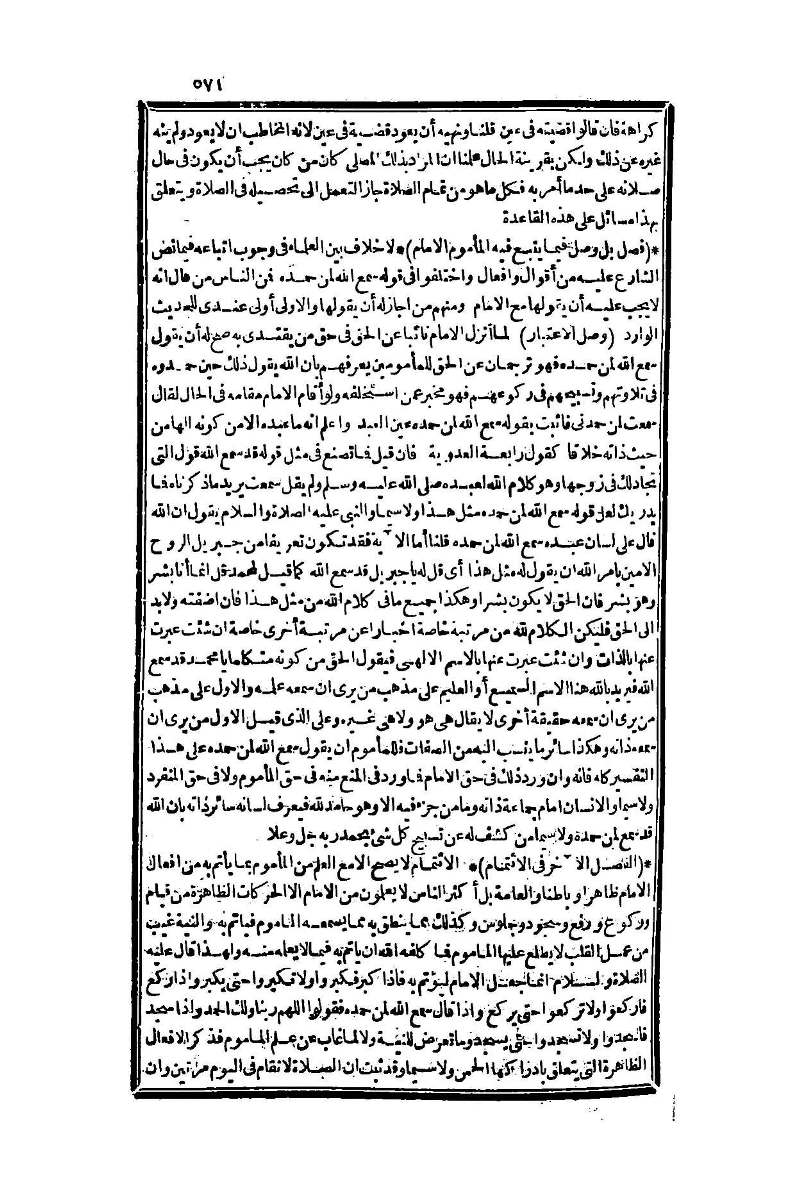 ٥٧١
كراهة فان قالوا قضيته في عين قلنا ونهيه أن يعود قضية في عين لانه المخاطب ان لا يعود ولم ينه
غيره عن ذلك ولكن بقرينة الحال علمنا ان المراد بذلك المصلى كان من كان يجب أن يكون في حال
صلاته على حد ما أمر به فكل ما هو من تمام الصلاة جاز التعمل الى تحصيله في الصلاة ويتعلق
بهذا مسائل على هذه القاعدة
*(فصل بل وصل فيما يتبع فيه المأموم الامام)* لا خلاف بين العلماء في وجوب اتباعه فيما نص
الشارع عليه من أقوال وافعال واختلفوا في قوله سمع الله لمن حمده فمن الناس من قال انه
لا يجب عليه أن يقولها مع الامام ومنهم من اجاز له أن يقولها والاولى أولى عندى للحديث
الوارد (وصل الاعتبار) لما أنزل الامام نائبا عن الحق في حق من يقتدى به صح له أن يقول
سمع الله لمن حمده فهو ترجمان عن الحق للمأمومين يعرفهم بان الله يقول ذلك حين حمدوه
في تلاوتهم وتسبيحهم في ركوعهم فهو مخبر عمن استخلفه ولو أقام الامام مقامه في الحال لقال
سمعت لمن حمدنى فاثبت بقوله سمع الله لمن حمده عين العبد واعلم انه ما عبده الا من كونه الها من
حيث ذاته خلافا كقول رابعة العدوية فان قيل فما تصنع في مثل قوله قد سمع الله قول التى
تجادلك في زوجها وهو كلام الله لعبده صلى الله عليه وسلم ولم يقل سمعت يريد ما ذكرناه فما
يدريك لعل قوله سمع الله لمن حمده مثل هذا ولا سيما والنبي عليه الصلاة والسلام يقول ان الله
قال على لسان عبده سمع الله لمن حمده قلنا أما الآية فقد تكون تعريفا من جبريل الروح
الامين بامر الله ان يقول له مثل هذا أى قل له يا جبريل قد سمع الله كما قيل لمحمد قل انما أنا بشر
وهو بشر فان الحق لا يكون بشرا وهكذا جميع ما في كلام الله من مثل هذا فان اضفته ولا بد
الى الحق فليكن الكلام لله من مرتبة خاصة اخبارا عن مرتبة أخرى خاصة ان شئت عبرت
عنها بالذات وان شئت عبرت عنها بالاسم الالهى فيقول الحق من كونه متكلما يا محمد قد سمع
الله فيريد بالله هنا الاسم السميع أو العليم على مذهب من يرى ان سمعه علمه والاول على مذهب
من يرى ان سمعه حقيقة أخرى لا يقال هى هو ولا هى غيره وعلى الذى قيل الاول من يرى ان
سمعه ذاته وهكذا سائر ما ينسب اليه من الصفات فللمأموم ان يقول سمع الله لمن حمده على هذا
التفسير كله فانه وان ورد ذلك في حق الامام فما ورد في المنع منه في حق المأموم ولا في حق المنفرد
ولا سيما والانسان امام جماعة ذاته وما من جزء فيه الا وهو حامد لله فيعرف لسانه سائر ذاته بان الله
قد سمع لمن حمده ولا سيما من كشف له عن تسبيح كل شئ بحمد ربه جل وعلا
*(الفصل الآخر في الائتمام)* الائتمام لا يصح الا مع العلم من المأموم بما يأتم به من افعال
الامام ظاهرا وباطنا والعامة بل أكثر الناس لا يعلمون من الامام الا الحركات الظاهرة من قيام
وركوع ورفع وسجود وجلوس وكذلك بما ينطق به مما يسمعه المأموم فياتم به والنية غيب
من عمل القلب لا يطلع عليها المأموم فما كلفه الله ان ياتم به فيما لا يعلمه منه ولهذا قال عليه
الصلاة والسلام انما جعل الامام ليؤتم به فاذا كبر فكبروا ولا تكبروا حتى يكبر واذا ركع
فاركعوا ولا تركعوا حتى يركع واذا قال سمع الله لمن حمده فقولوا اللهم ربنا ولك الحمد واذا سجد
فاسجدوا ولا تسجدوا حتى يسجد وما تعرض للنية ولا لما غاب عن علم المأموم فذكر الافعال
الظاهرة التى يتعلق بادراكها الحس ولا سيما وقد ثبت ان الصلاة لا تقام في اليوم مرتين وان